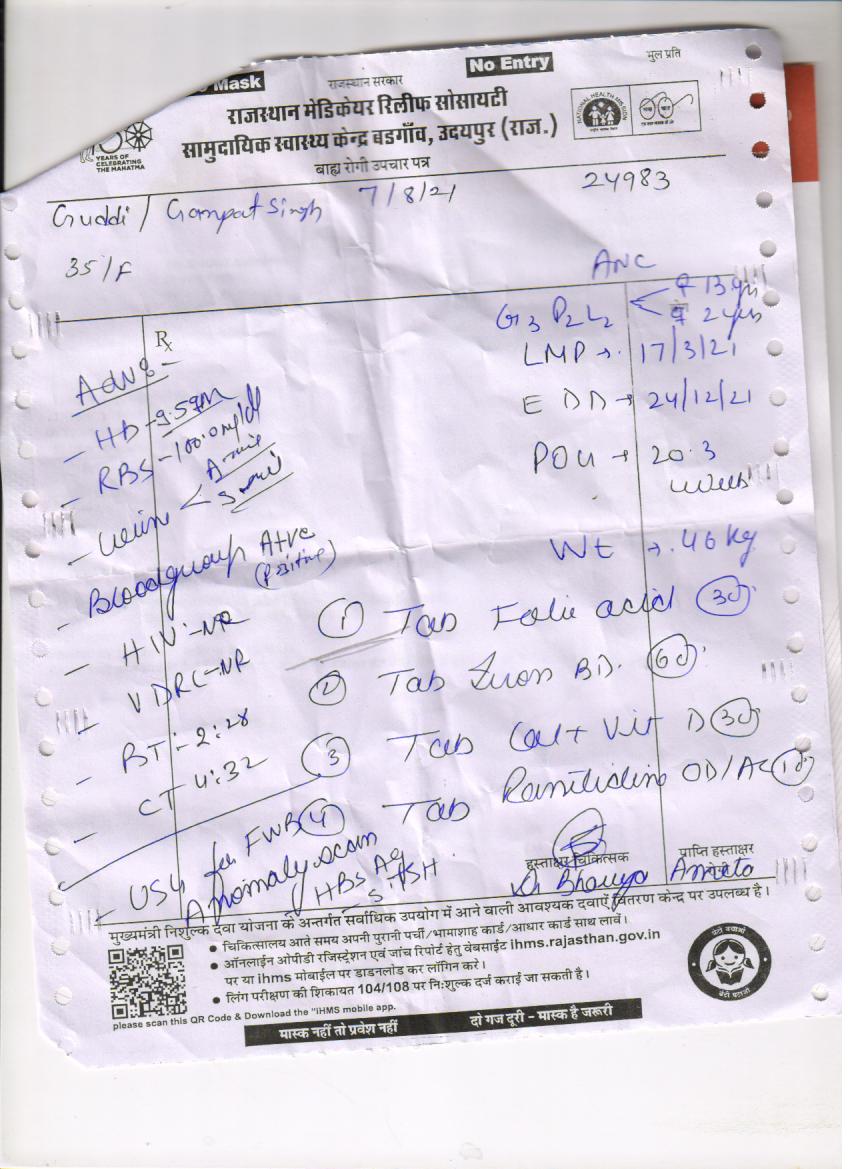 Mask
No Entry
मुल प्रति
राजस्थान सरकार
राजस्थान मेडिकेयर रिलीफ सोसायटी
सामुदायिक स्वास्थ्य केन्द्र बडगाँव, उदयपुर (राज.)
बाह्य रोगी उपचार पत्र
YEARS OF
CELEBRATING
THE MAHATMA
NATIONAL HEALTH MISSION
Guddi / Gampat Singh 7/8/21 24983
35/F
ANC
G3 P2 L2
13 yrs
2 yrs
LMP → 17/3/21
EDD → 24/12/21
POU → 20.3
weeks
Wt → 46 kg
Rx
Adv:-
- HB - 9.5gm
- RBS - 100.0 mg/dl
- Urin
- Bloodgroup A+ve
(Positive)
- HIV - NR
- VDRL - NR
- BT :- 2:28
- CT 4:32
- USG for FWB
Anomaly scan
HBs Ag
S. TSH
① Tab Folic acid 30
② Tab Iron BD. 60
③ Tab Cal + Vit D 30
④ Tab Ranitidine OD/AC 10
हस्ताक्षर चिकित्सक
प्राप्ति हस्ताक्षर
मुख्यमंत्री निशुल्क दवा योजना के अन्तर्गत सर्वाधिक उपयोग में आने वाली आवश्यक दवाऐं वितरण केन्द्र पर उपलब्ध है।
• चिकित्सालय आते समय अपनी पुरानी पर्ची/भामाशाह कार्ड/आधार कार्ड साथ लावें।
• ऑनलाईन ओपीडी रजिस्ट्रेशन एवं जांच रिपोर्ट हेतु वेबसाईट ihms.rajasthan.gov.in
पर या ihms मोबाईल पर डाडनलोड कर लॉगिन करे।
• लिंग परीक्षण की शिकायत 104/108 पर निःशुल्क दर्ज कराई जा सकती है।
please scan this QR Code & Download the "iHMS mobile app.
मास्क नहीं तो प्रवेश नहीं
दो गज दूरी - मास्क है जरूरी
बेटी बचाओ
बेटी पढ़ाओ